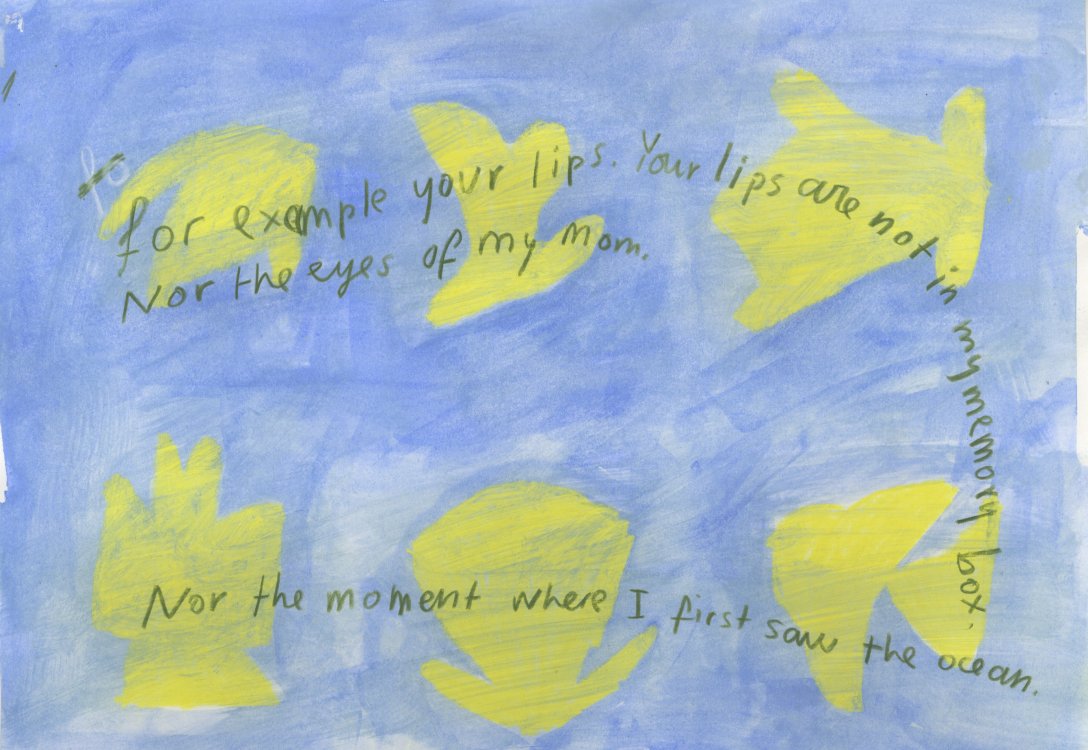 for example your lips. Your lips are not in my memory box.
Nor the eyes of my mom.
Nor the moment where I first saw the ocean.